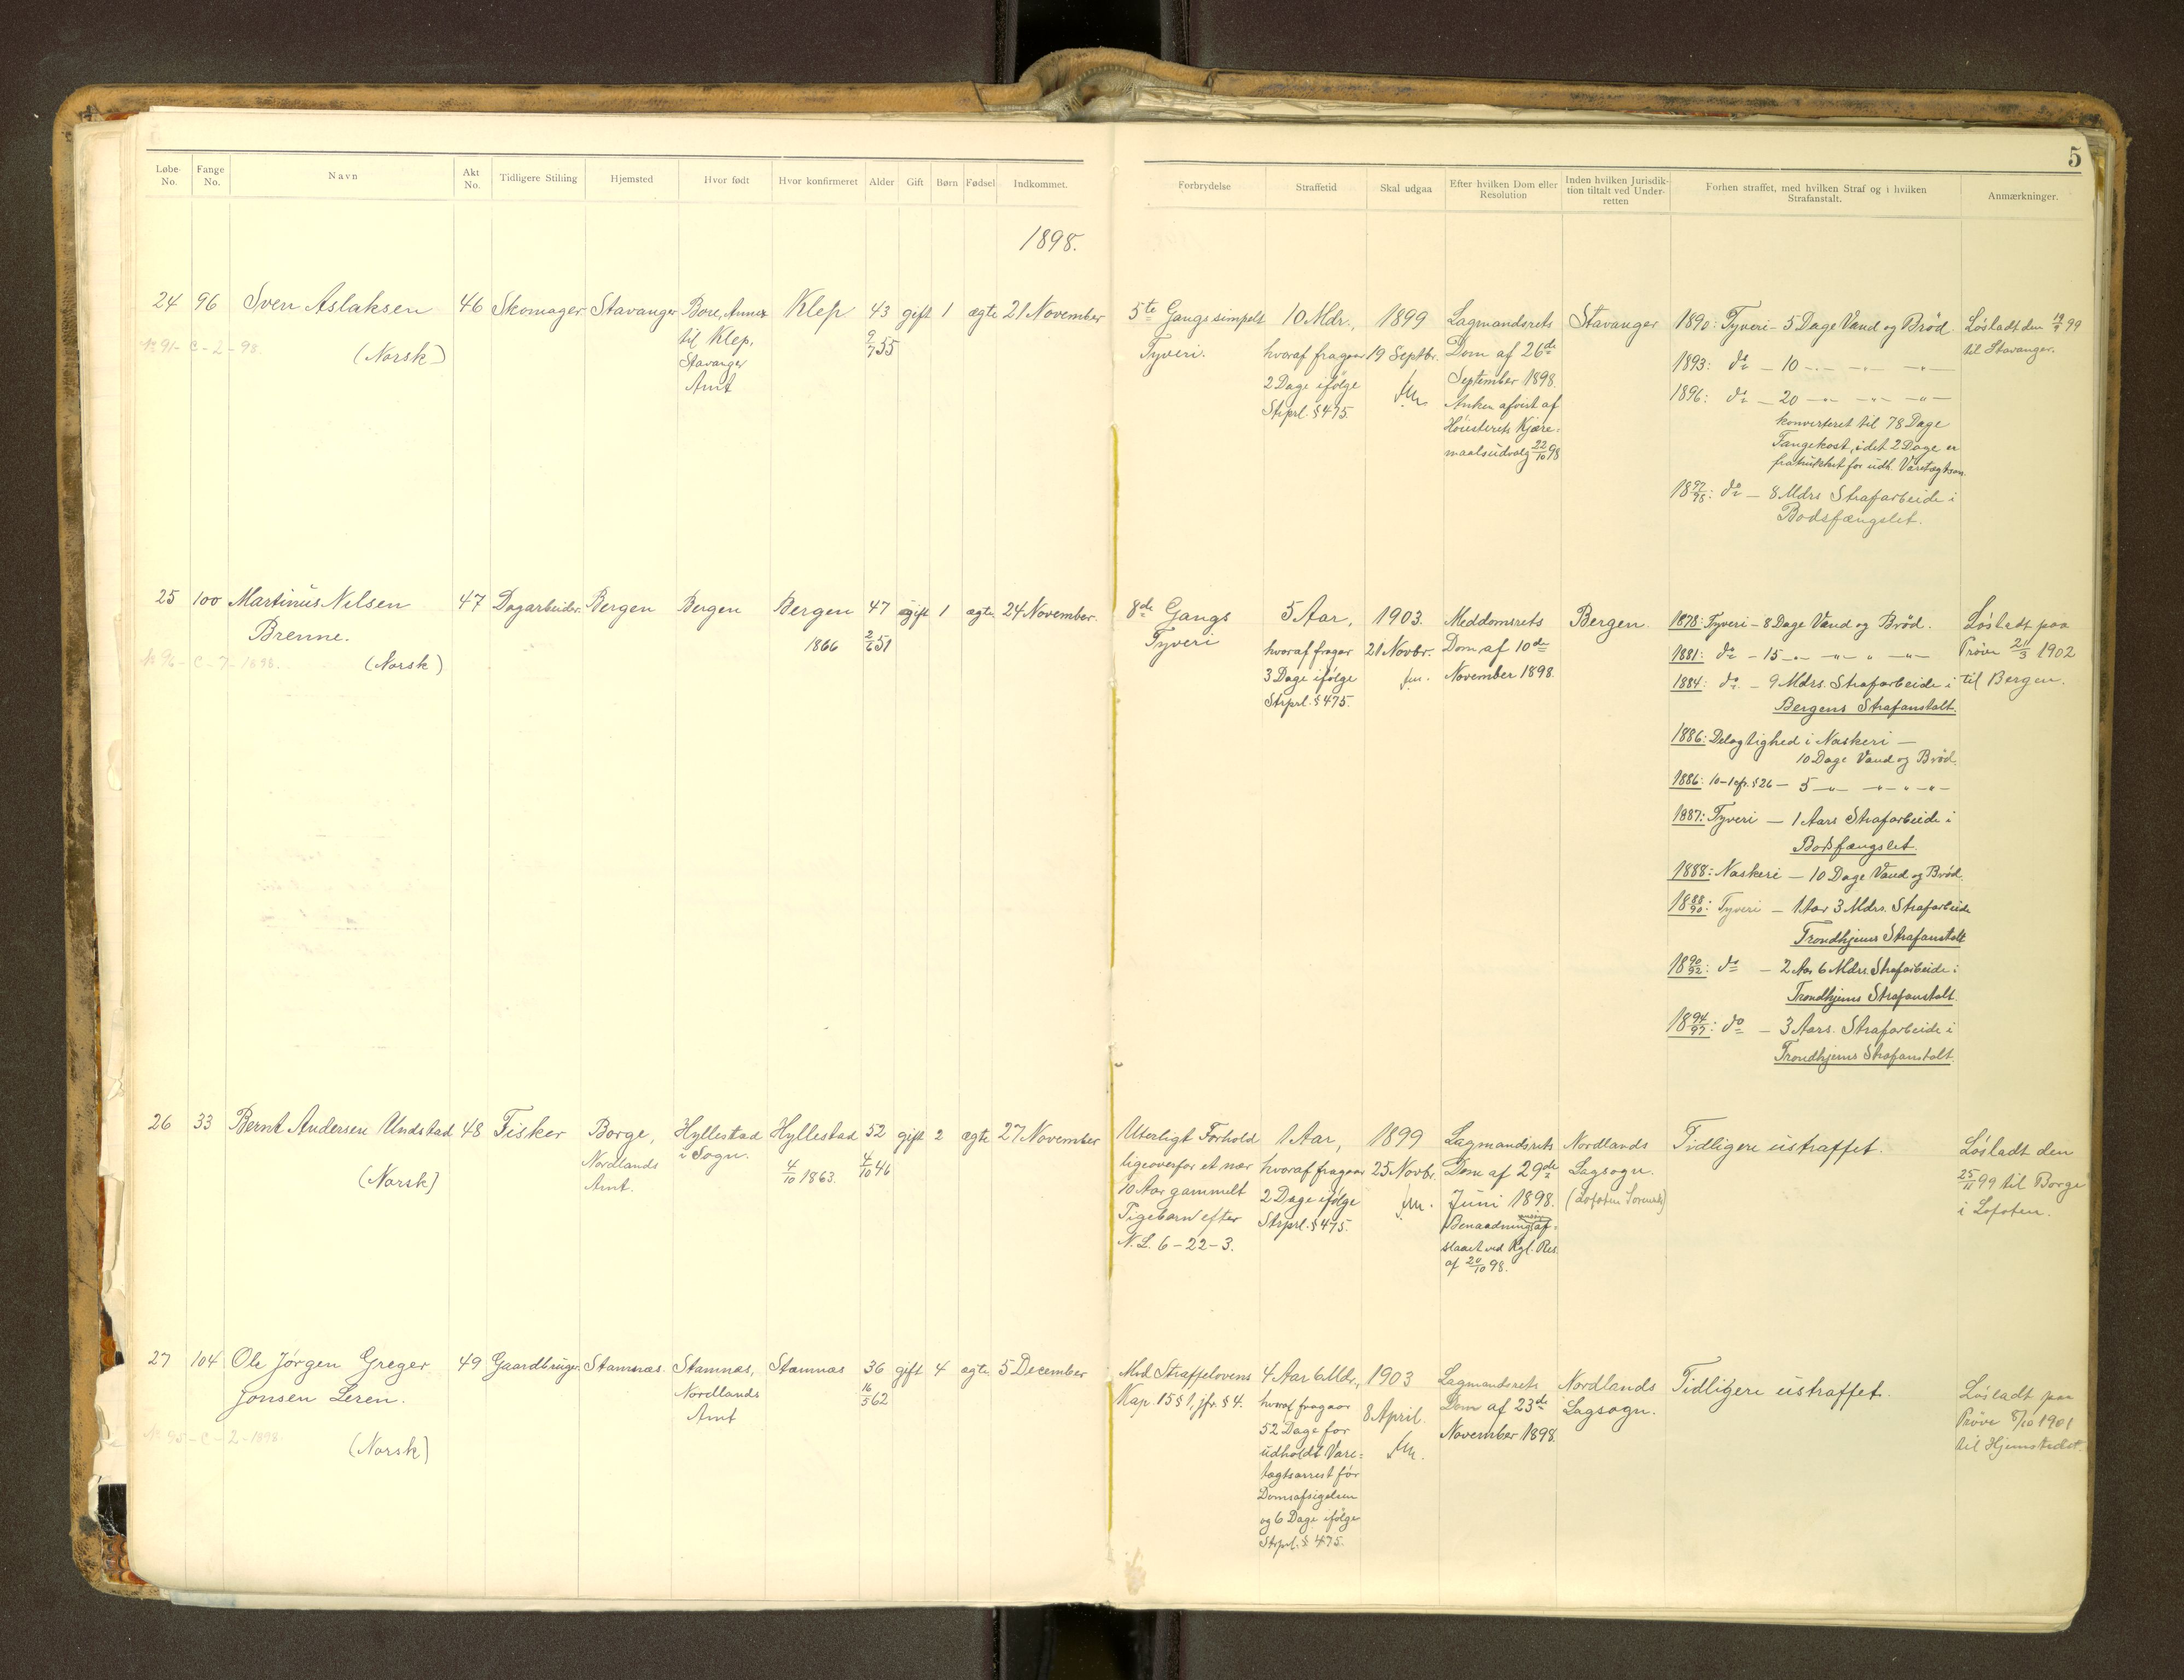 5
Løbe-No. Fange No. Navn Akt No. Tidligere Stilling Hjemsted Hvor født Hvor konfirmeret Alder Gift Børn Fødsel Indkommet.
Forbrydelse Straffetid Skal udgaa Efter hvilken Dom eller Resolution Inden hvilken Jurisdiktion tiltalt ved Underretten Forhen straffet, med hvilken Straf og i hvilken Strafanstalt. Anmærkninger.
1898.
24 96 Sven Aslaksen 46 Skomager Stavanger Bore, Annex Klep 43 gift 1 ægte 21 November
til Klep, 9/7 55
No 91 - C - 2 - 98. (Norsk) Stavanger
Amt
5te Gangs simpelt 10 Mdr., 1899 Lagmandsrets Stavanger 1890: Tyveri - 5 Dage Vand og Brød. Løsladt den 19/9 99
Tyveri. hvoraf fragaar 19 Septbr. Dom af 26de til Stavanger.
2 Dage ifølge September 1898. 1893: do - 10 -"- -"- -"-
Strprl. § 475. Anken afvist af 1896: do - 20 -"- -"- -"-
Høiesterets Kjære= konverteret til 78 Dage
maalsudvalg 22/10 98 Fangekost, idet 2 Dage er
fratrukket for udh. Varetægtsar.
18 97/98: do - 8 Mdrs Strafarbeide i
Bodsfængslet.
25 100 Martinus Nilsen 47 Dagarbeider. Bergen Bergen Bergen 47 gift 1 ægte 24 November.
Brenne. 1866 2/6 51
No 96 - C - 7 - 1898. (Norsk)
8de Gangs 5 Aar, 1903. Meddomsrets Bergen. 1878: Tyveri - 8 Dage Vand og Brød. Løsladt paa
Tyveri hvoraf fragaar 21 Novbr. Dom af 10de 1881: do - 15 -"- -"- " -"- Prøve 21/3 1902
3 Dage ifølge November 1898. 1884: do - 9 Mdrs. Strafarbeide i til Bergen.
Strprl. § 475. Bergens Strafanstalt.
1886: Delagtighed i Naskeri -
10 Dage Vand og Brød.
1886: 10-1 cfr. § 26 - 5 -"- -"- " -"-
1887: Tyveri - 1 Aars Strafarbeide i
Bodsfængslet.
1888: Naskeri - 10 Dage Vand og Brød.
18 88/90: Tyveri - 1 Aar 3 Mdrs. Strafarbeide
Trondhjems Strafanstalt
18 90/92: do - 2 Aar 6 Mdrs. Strafarbeide i
Trondhjems Strafanstalt.
18 94/97: do - 3 Aars. Strafarbeide i
Trondhjems Strafanstalt.
26 33 Bernt Andersen Undstad 48 Fisker Borge, Hyllestad Hyllestad 52 gift 2 ægte 27 November
Nordlands i Sogn. 4/10 1863. 4/10 46
(Norsk) Amt.
Utterligt Forhold 1 Aar, 1899 Lagmandsrets Nordlands Tidligere ustraffet. Løsladt den
ligeoverfor et nær hvoraf fragaar 25 Novbr. Dom af 29de Lagsogn. 25/11 99 til Borge
10 Aar gammelt 2 Dage ifølge Juni 1898. (Lofoten Sorensk) i Lofoten.
Pigebarn efter Strprl. § 475. Benaadning af=
N. L. 6-22-3. slaaet ved Kgl. Res.
af 20/10 98.
27 104 Ole Jørgen Greger 49 Gaardbruger. Stamnæs. Stamnæs, Stamnæs 36 gift 4 ægte 5 December
Jonsen Leren. Nordlands 16/5 62
Amt
No 95 - C - 2 - 1898. (Norsk)
Mod Straffelovens 4 Aar 6 Mdr., 1903 Lagmandsrets Nordlands Tidligere ustraffet. Løsladt paa
Kap. 15 § 1, jfr. § 4. hvoraf fragaar 8 April. Dom af 23de Lagsogn. Prøve 8/10 1901
52 Dage for November 1898. til Hjemstedet.
udholdt Vare=
tægtsarrest før
Domsafsigelsen
og 6 Dage ifølge
Strprl. § 475.